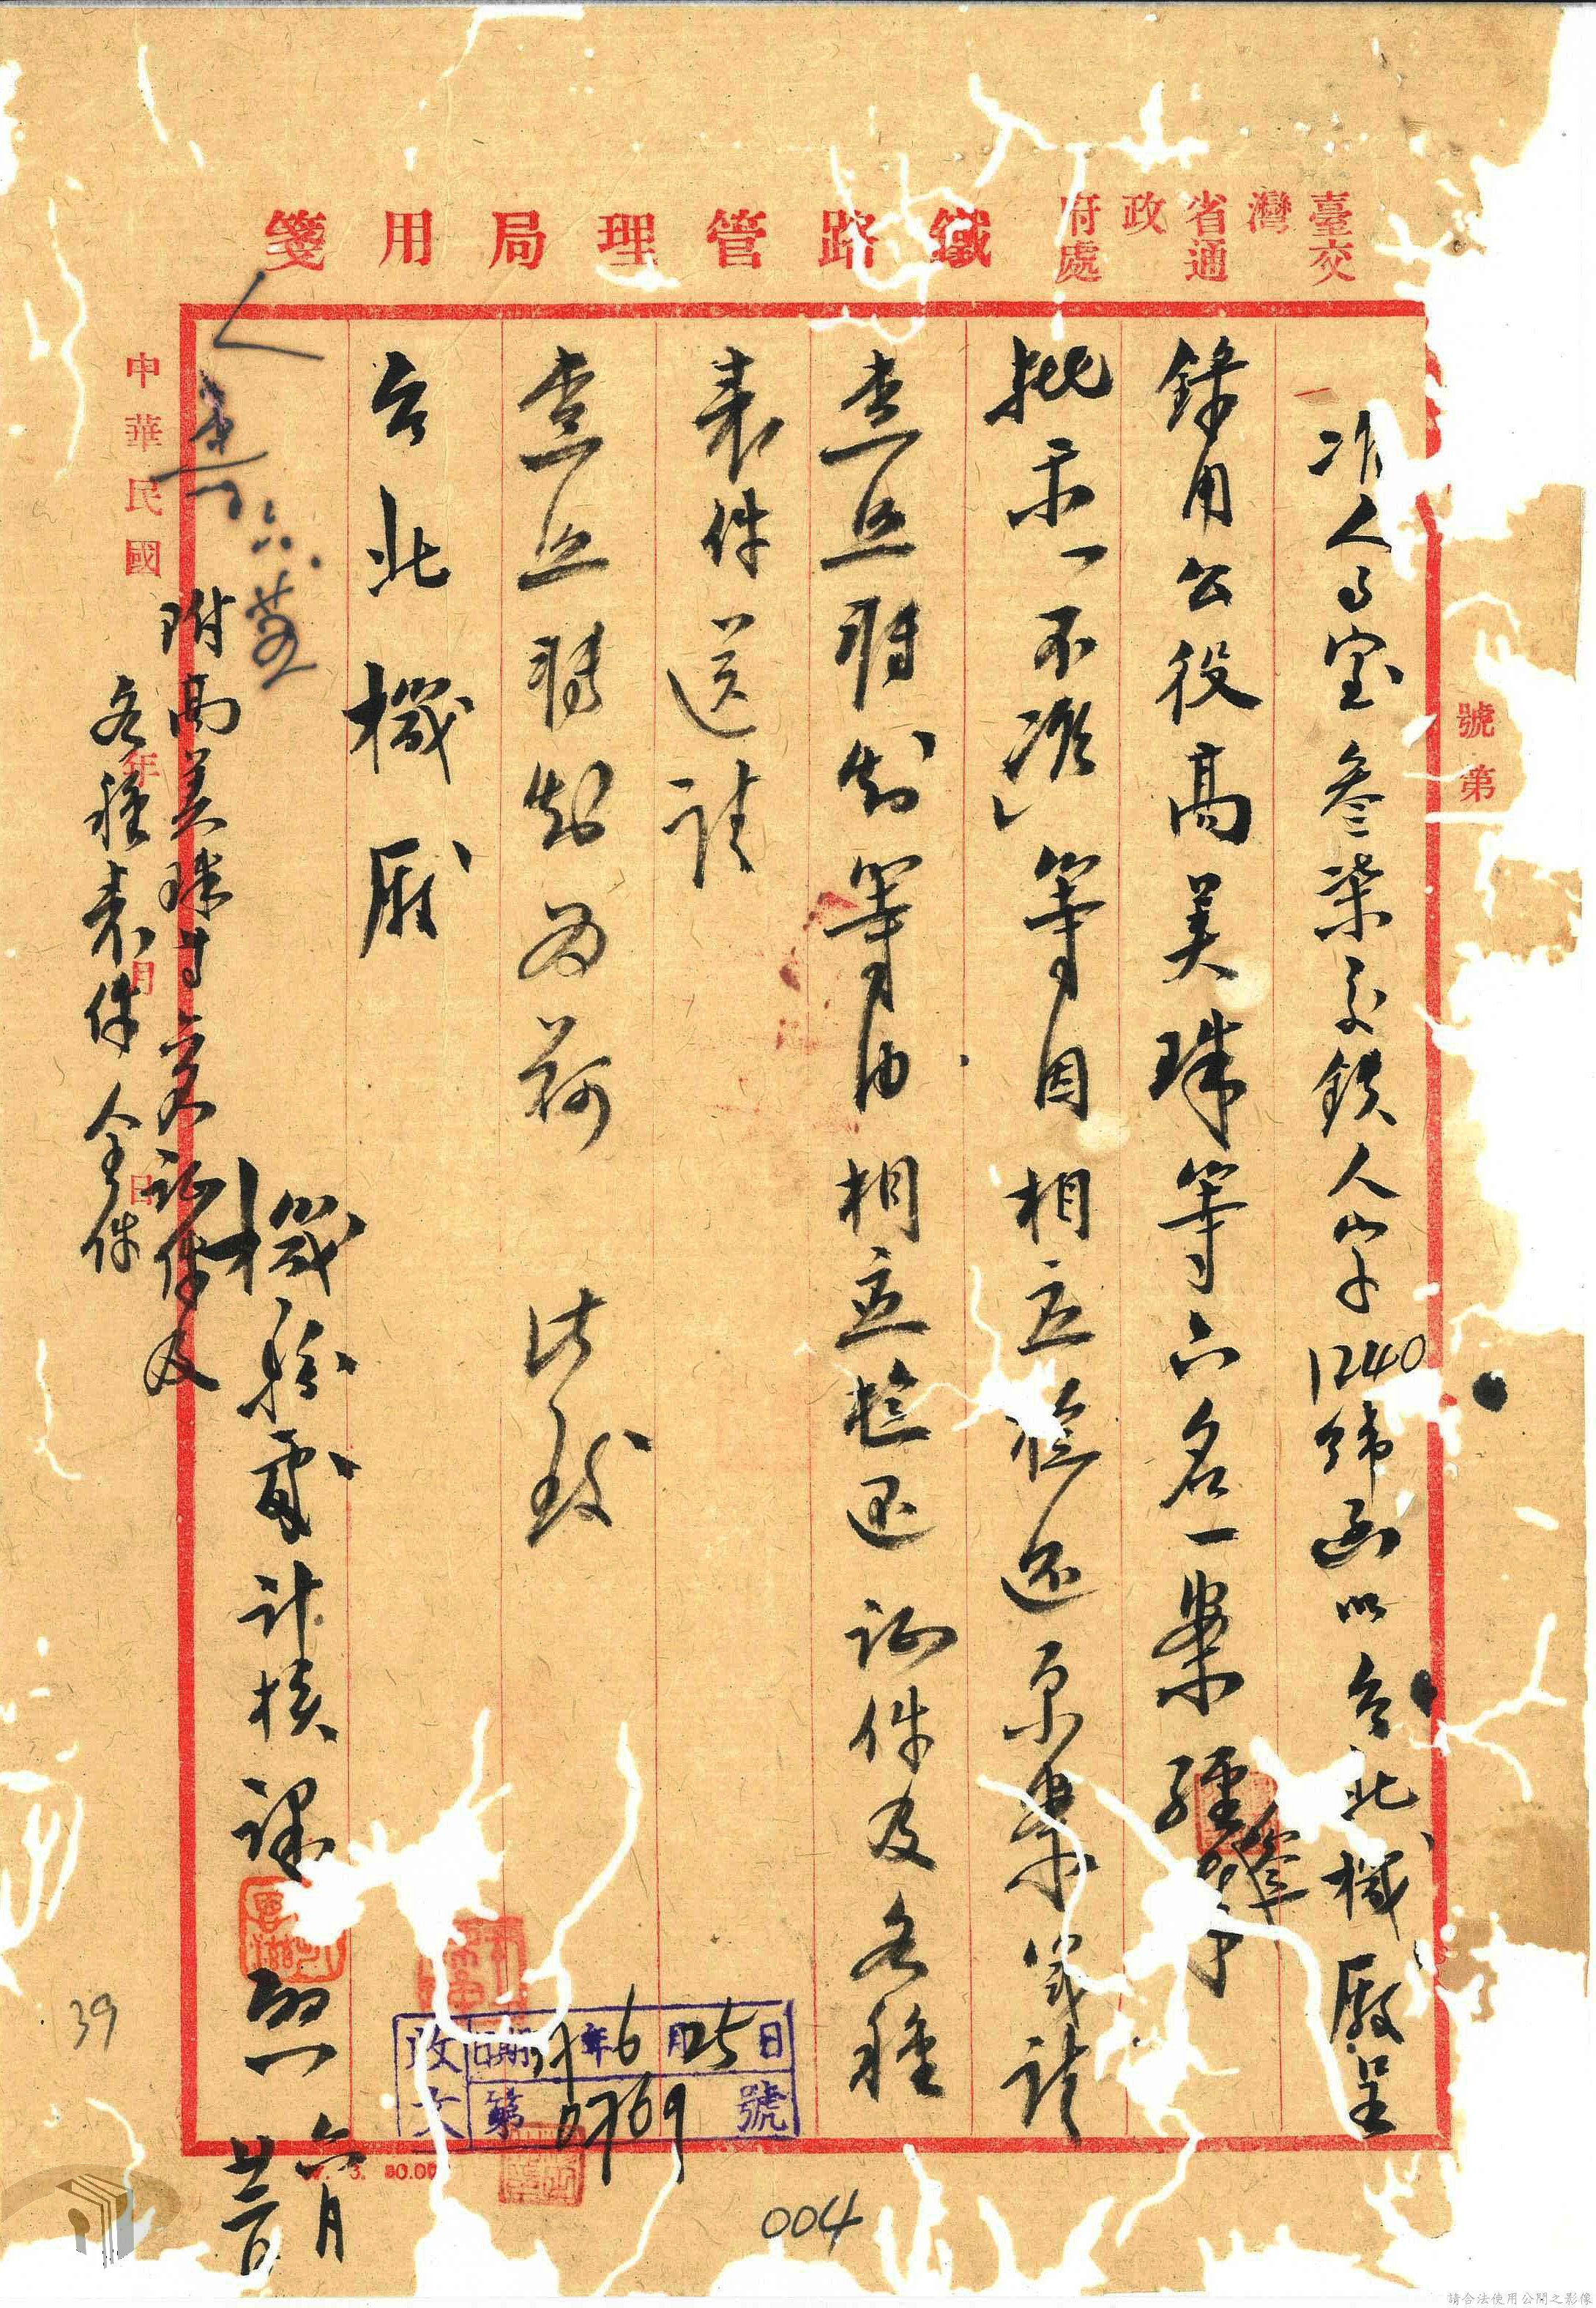 臺灣省政府
交通處
鐵路管理局用箋
號 第
准人事室叁柒交鉄人字1240號函以台北機廠呈
錄用公役高美珠等六名一案經簽奉
批示「不准」等因相應檢還原案箋請
查照轉知等由相應檢還証件及各種
表件送請
查照轉知為荷 此致
台北機廠
機務處計核課啟 六月
廿三日
附高美珠等六名証件及
各種表件全件
中華民國 年 月 日
收文 日期 37年6月25日
第0769號
004
39
請合法使用公開之影像